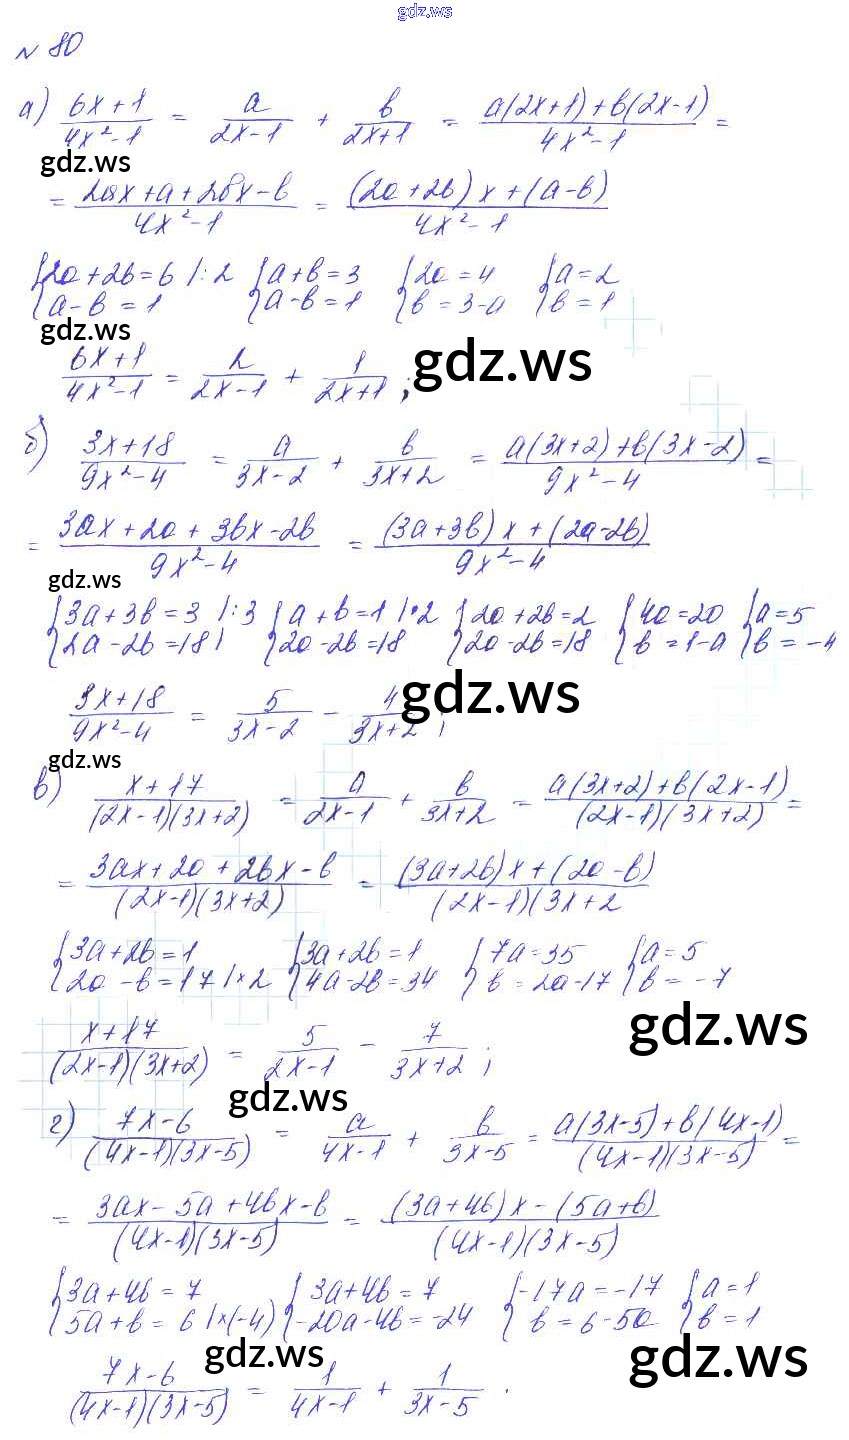 gdz.ws
№ 80
а) (6x+1)/(4x²-1) = a/(2x-1) + b/(2x+1) = (a(2x+1)+b(2x-1))/(4x²-1) =
gdz.ws
= (2ax+a+2bx-b)/(4x²-1) = ((2a+2b)x+(a-b))/(4x²-1)
{2a+2b=6 |:2 {a+b=3 {2a=4 {a=2
{a-b=1 {a-b=1 {b=3-a {b=1
gdz.ws
(6x+1)/(4x²-1) = 2/(2x-1) + 1/(2x+1);
gdz.ws
б) (3x+18)/(9x²-4) = a/(3x-2) + b/(3x+2) = (a(3x+2)+b(3x-2))/(9x²-4) =
= (3ax+2a+3bx-2b)/(9x²-4) = ((3a+3b)x+(2a-2b))/(9x²-4)
gdz.ws
{3a+3b=3 |:3 {a+b=1 |·2 {2a+2b=2 {4a=20 {a=5
{2a-2b=18 | {2a-2b=18 {2a-2b=18 {b=1-a {b=-4
(3x+18)/(9x²-4) = 5/(3x-2) - 4/(3x+2);
gdz.ws
gdz.ws
в) (x+17)/((2x-1)(3x+2)) = a/(2x-1) + b/(3x+2) = (a(3x+2)+b(2x-1))/((2x-1)(3x+2)) =
= (3ax+2a+2bx-b)/((2x-1)(3x+2)) = ((3a+2b)x+(2a-b))/((2x-1)(3x+2
{3a+2b=1 {3a+2b=1 {7a=35 {a=5
{2a-b=17 |×2 {4a-2b=34 {b=2a-17 {b=-7
gdz.ws
(x+17)/((2x-1)(3x+2)) = 5/(2x-1) - 7/(3x+2);
gdz.ws
г) (7x-6)/((4x-1)(3x-5)) = a/(4x-1) + b/(3x-5) = (a(3x-5)+b(4x-1))/((4x-1)(3x-5)) =
= (3ax-5a+4bx-b)/((4x-1)(3x-5)) = ((3a+4b)x-(5a+b))/((4x-1)(3x-5))
{3a+4b=7 {3a+4b=7 {-17a=-17 {a=1
{5a+b=6 |×(-4) {-20a-4b=-24 {b=6-5a {b=1
gdz.ws
gdz.ws
(7x-6)/((4x-1)(3x-5)) = 1/(4x-1) + 1/(3x-5).